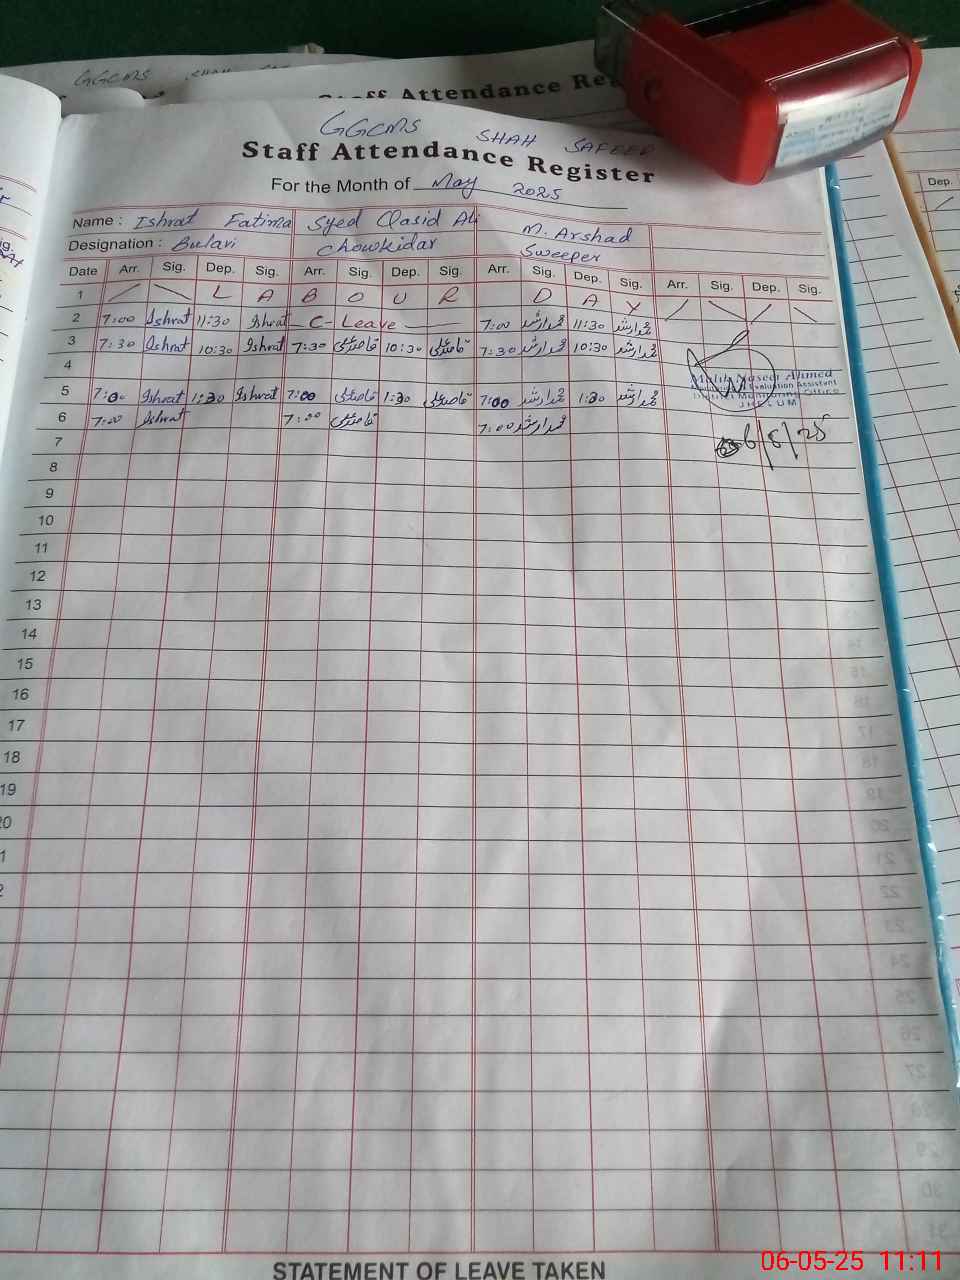 GGCMS SHAH
Staff Attendance Re
GGCMS SHAH SAFEER
Staff Attendance Register
For the Month of May 2025
Name : Ishrat Fatima Syed Qasid Ali M. Arshad
Designation : Bulavi Chowkidar Sweeper
Date Arr. Sig. Dep. Sig. Arr. Sig. Dep. Sig. Arr. Sig. Dep. Sig. Arr. Sig. Dep. Sig.
1 L A B O U R D A Y
2 7:00 Ishrat 11:30 Ishrat C- Leave 7:00 محمد ارشد 11:30 محمد ارشد
3 7:30 Ishrat 10:30 Ishrat 7:30 قاصد علی 10:30 قاصد علی 7:30 محمد ارشد 10:30 محمد ارشد
4
5 7:00 Ishrat 1:30 Ishrat 7:00 قاصد علی 1:30 قاصد علی 7:00 محمد ارشد 1:30 محمد ارشد
6 7:00 Ishrat 7:00 قاصد علی 7:00 محمد ارشد
Malik Naseer Ahmed
Monitoring & Evaluation Assistant
District Monitoring Office
JHELUM
6/5/25
7
8
9
10
11
12
13
14
15
16
17
18
19
20
Dep.
STATEMENT OF LEAVE TAKEN
06-05-25 11:11